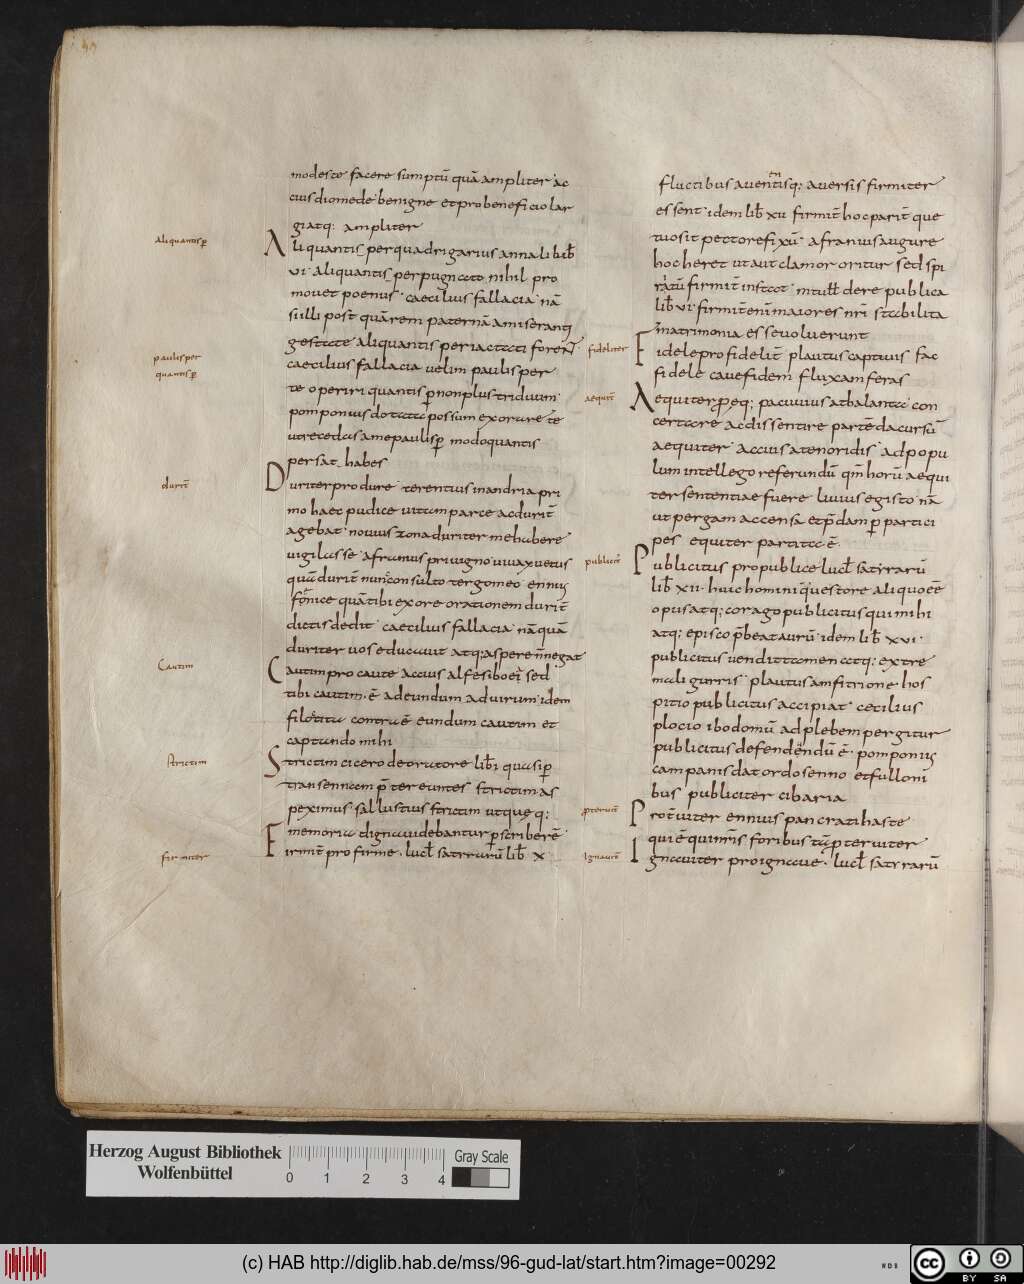 modeste facere sumptū quā ampliter ac
cius diomede benigne et pro beneficio lar
giatq; ampliter
Aliquantisp̱
Aliquantis per quadrigarius annali lib̄
vi aliquantis per pugnato nihil pro
mouet poenus caecilius fallacia nā
si illi post quā rem paternā amiserant
gestate aliquantis per iactati forent
paulisper
quantisp̱
caecilius fallacia uelim paulisper
te operiri quantisp̱ non plus triduum
pomponius dotata possum exorare te
ut recedas a me paulisp̱ modo quantis
per sat habes
durit̄
Duriter pro dure terentius in andria pri
mo haec pudice uitam parce ac durit̄
agebat nouius zona duriter me habere
uigilasse afranius priuigno uiuax uetus
quā durit̄ nunc consulto tergo meo ennius
fornice quā tibi ex ore orationem durit̄
dictis dedit caecilius fallacia nā quā
duriter uos educauit atq; aspere n̄ negat
Cautim
Cautim pro caute accius alfesiboei sed
tibi cautim ē adeundum ad uirum idem
contra ē eundum cautim et
captando mihi
strictim
Strictim cicero de oratore lib̄ i quasi p̱
transennam p̄tereuntes strictim as
peximus sallustius strictim utque q:
memoria digna uidebantur p̱scriberē
firmiter
Firmit̄ pro firme lucl̄ satyrarū lib̄ x
fluctibus a uentisq; auersis firmiter
essent idem lib̄ xii firmit̄ hoc parit̄ que
tuo sit pectore fixū afranius augure
hoc heret ut aut clamor oritur sed spi
ratū firmit̄ instat m tull̄ de re publica
lib̄ vi firmit̄ enī maiores nr̄i stabilita
matrimonia esse uoluerunt
fideliter
Fidele pro fidelit̄ plautus captiuis fac
fidele caue fidem fluxam feras
aequit̄
Aequiter pro eq; pacuuius atalanta con
certare ac dissentire partē da cursū
aequiter accius atenoridis ad popu
lum intellego referundū qm̄ horū aequi
ter sententiae fuere liuius egisto nā
ut pergam accensa et p̄dam p̱ partici
pes equiter partita ē
publicit̄
Publicitus pro publice lucl̄ satyrarū
lib̄ xii huic homini questore aliquo eē
opus atq; corago publicitus qui mihi
atq; idem lib̄ xvi
publicitus uendit tamen atq; extre
ma ligurris plautus amfitrione hos
pitio publicitus accipiat cecilius
plocio ibo domū ad plebem pergitur
publicitus defendendū ē pomponius
campanis dat ordo senno et fulloni
bus publiciter cibaria
p̱teruit̄
Proteruiter ennius pancratihaste
qui ē qui nr̄is foribus tā p̱teruiter
Ignauit̄
Ignauiter pro ignaue lucl̄ satyrarū
Herzog August Bibliothek
Wolfenbüttel
0 1 2 3 4
Gray Scale
(c) HAB http://diglib.hab.de/mss/96-gud-lat/start.htm?image=00292
WDB
cc BY SA